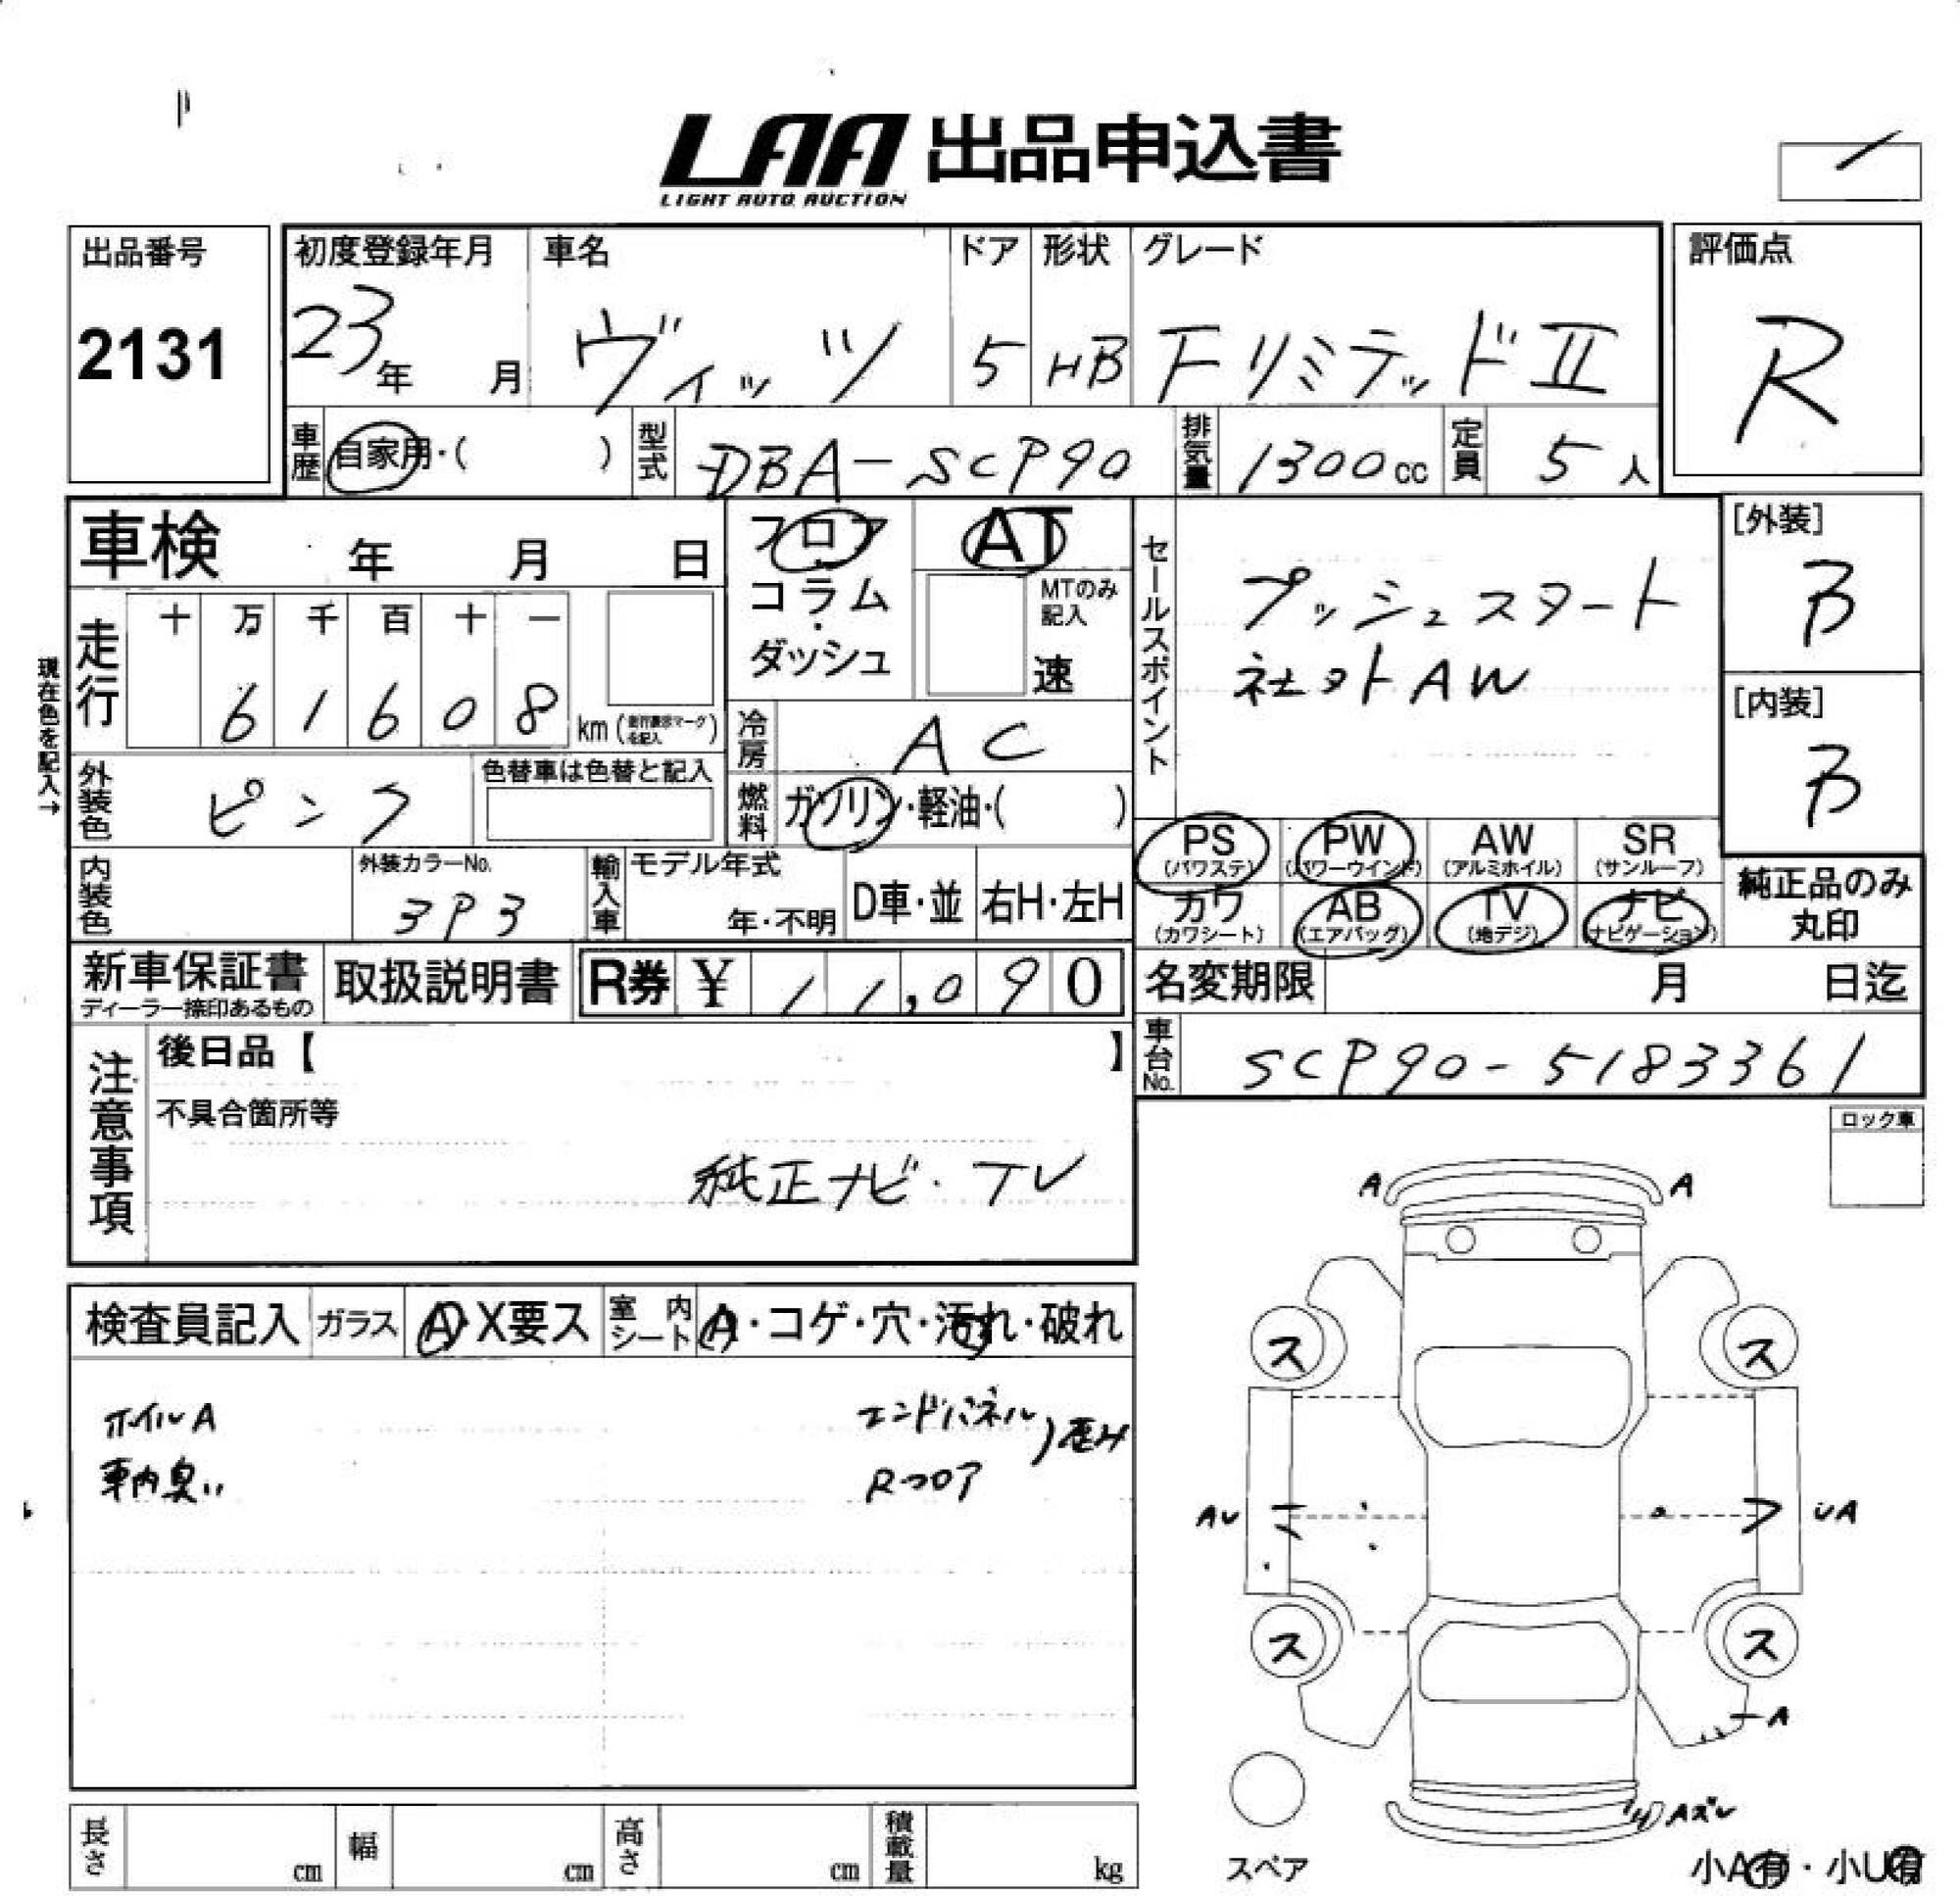 LAA 出品申込書
LIGHT AUTO AUCTION
出品番号
2131
初度登録年月
23年 月
車名
ヴィッツ
ドア
5
形状
HB
グレード
F リミテッド II
評価点
R
車歴 自家用・( )
型式 DBA-SCP90
排気量 1300cc
定員 5人
車検 年 月 日
フロア・コラム・ダッシュ
AT
MTのみ記入
速
セールスポイント
プッシュスタート
社外AW
[外装]
B
[内装]
B
現在色を記入→
走行
十 万 千 百 十 一
6 1 6 0 8 km (走行表示マークを記入)
冷房 AC
外装色 ピンク
色替車は色替と記入
燃料 ガソリン・軽油・( )
PS (パワステ)
PW (パワーウインド)
AW (アルミホイル)
SR (サンルーフ)
カワ (カワシート)
AB (エアバッグ)
TV (地デジ)
ナビ (ナビゲーション)
純正品のみ
丸印
内装色
外装カラーNo.
3P3
輸入車
モデル年式
年・不明
D車・並
右H・左H
新車保証書
ディーラー捺印あるもの
取扱説明書
R券 ¥ 11,090
名変期限 月 日迄
車台No. SCP90-5183361
注意事項
後日品【 】
不具合箇所等
純正ナビ・TV
ロック車
検査員記入
ガラス A・X要ス
室内シート A・コゲ・穴・汚れ・破れ
ホイルA
車内臭い
エンドパネル
Rフロア
)歪み
A A
ス ス
AU UA
ス ス
A
Aズレ
スペア
小A有・小U有
長さ cm
幅 cm
高さ cm
積載量 kg